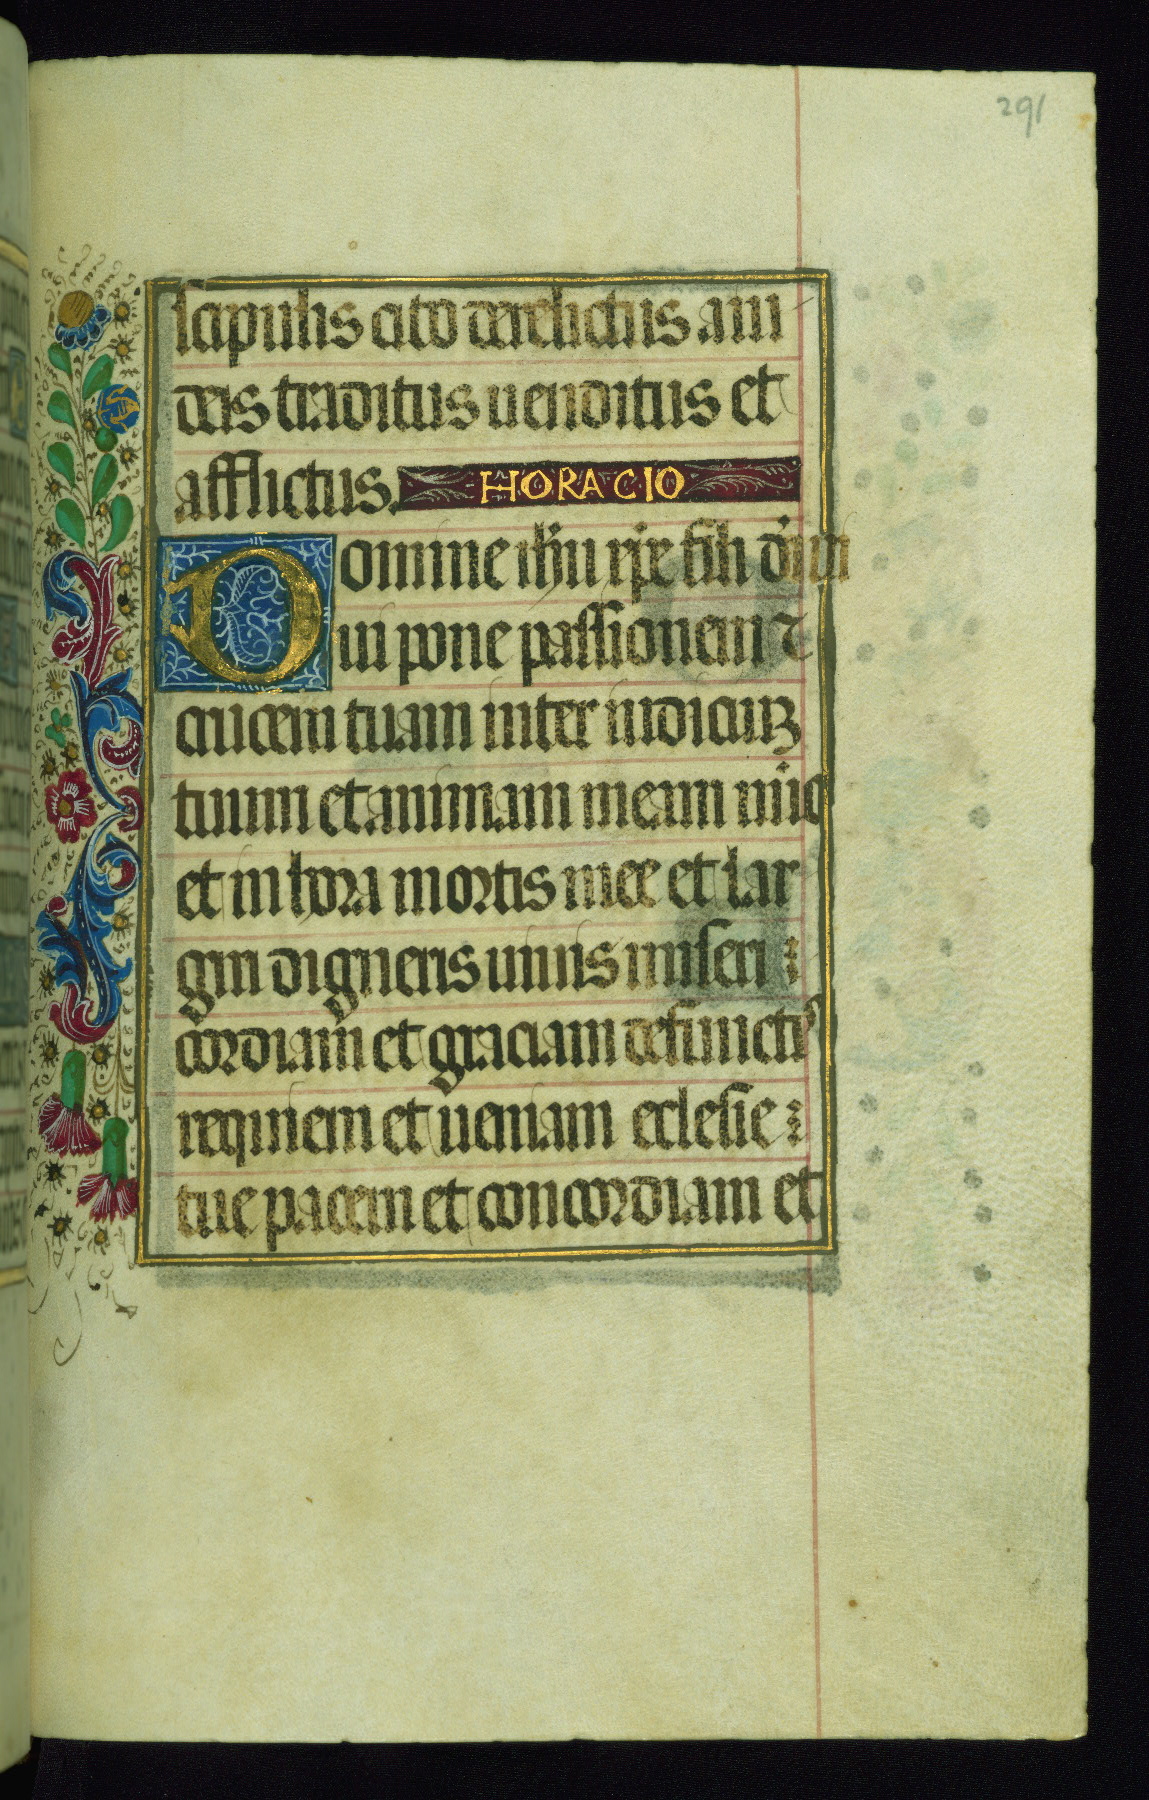 291
scipulis cito derelictus a iu
deis traditus uenditus et
afflictus. HORACIO
Domine ihu xpe fili dei ui
ui pone passionem ⁊
crucem tuam inter iudiciuꝫ
tuum et animam meam nūc
et in hora mortis mee et lar
giri digneris uiuis miseri
cordiam et graciam defunctis
requiem et ueniam ecclesie
tue pacem et concordiam et